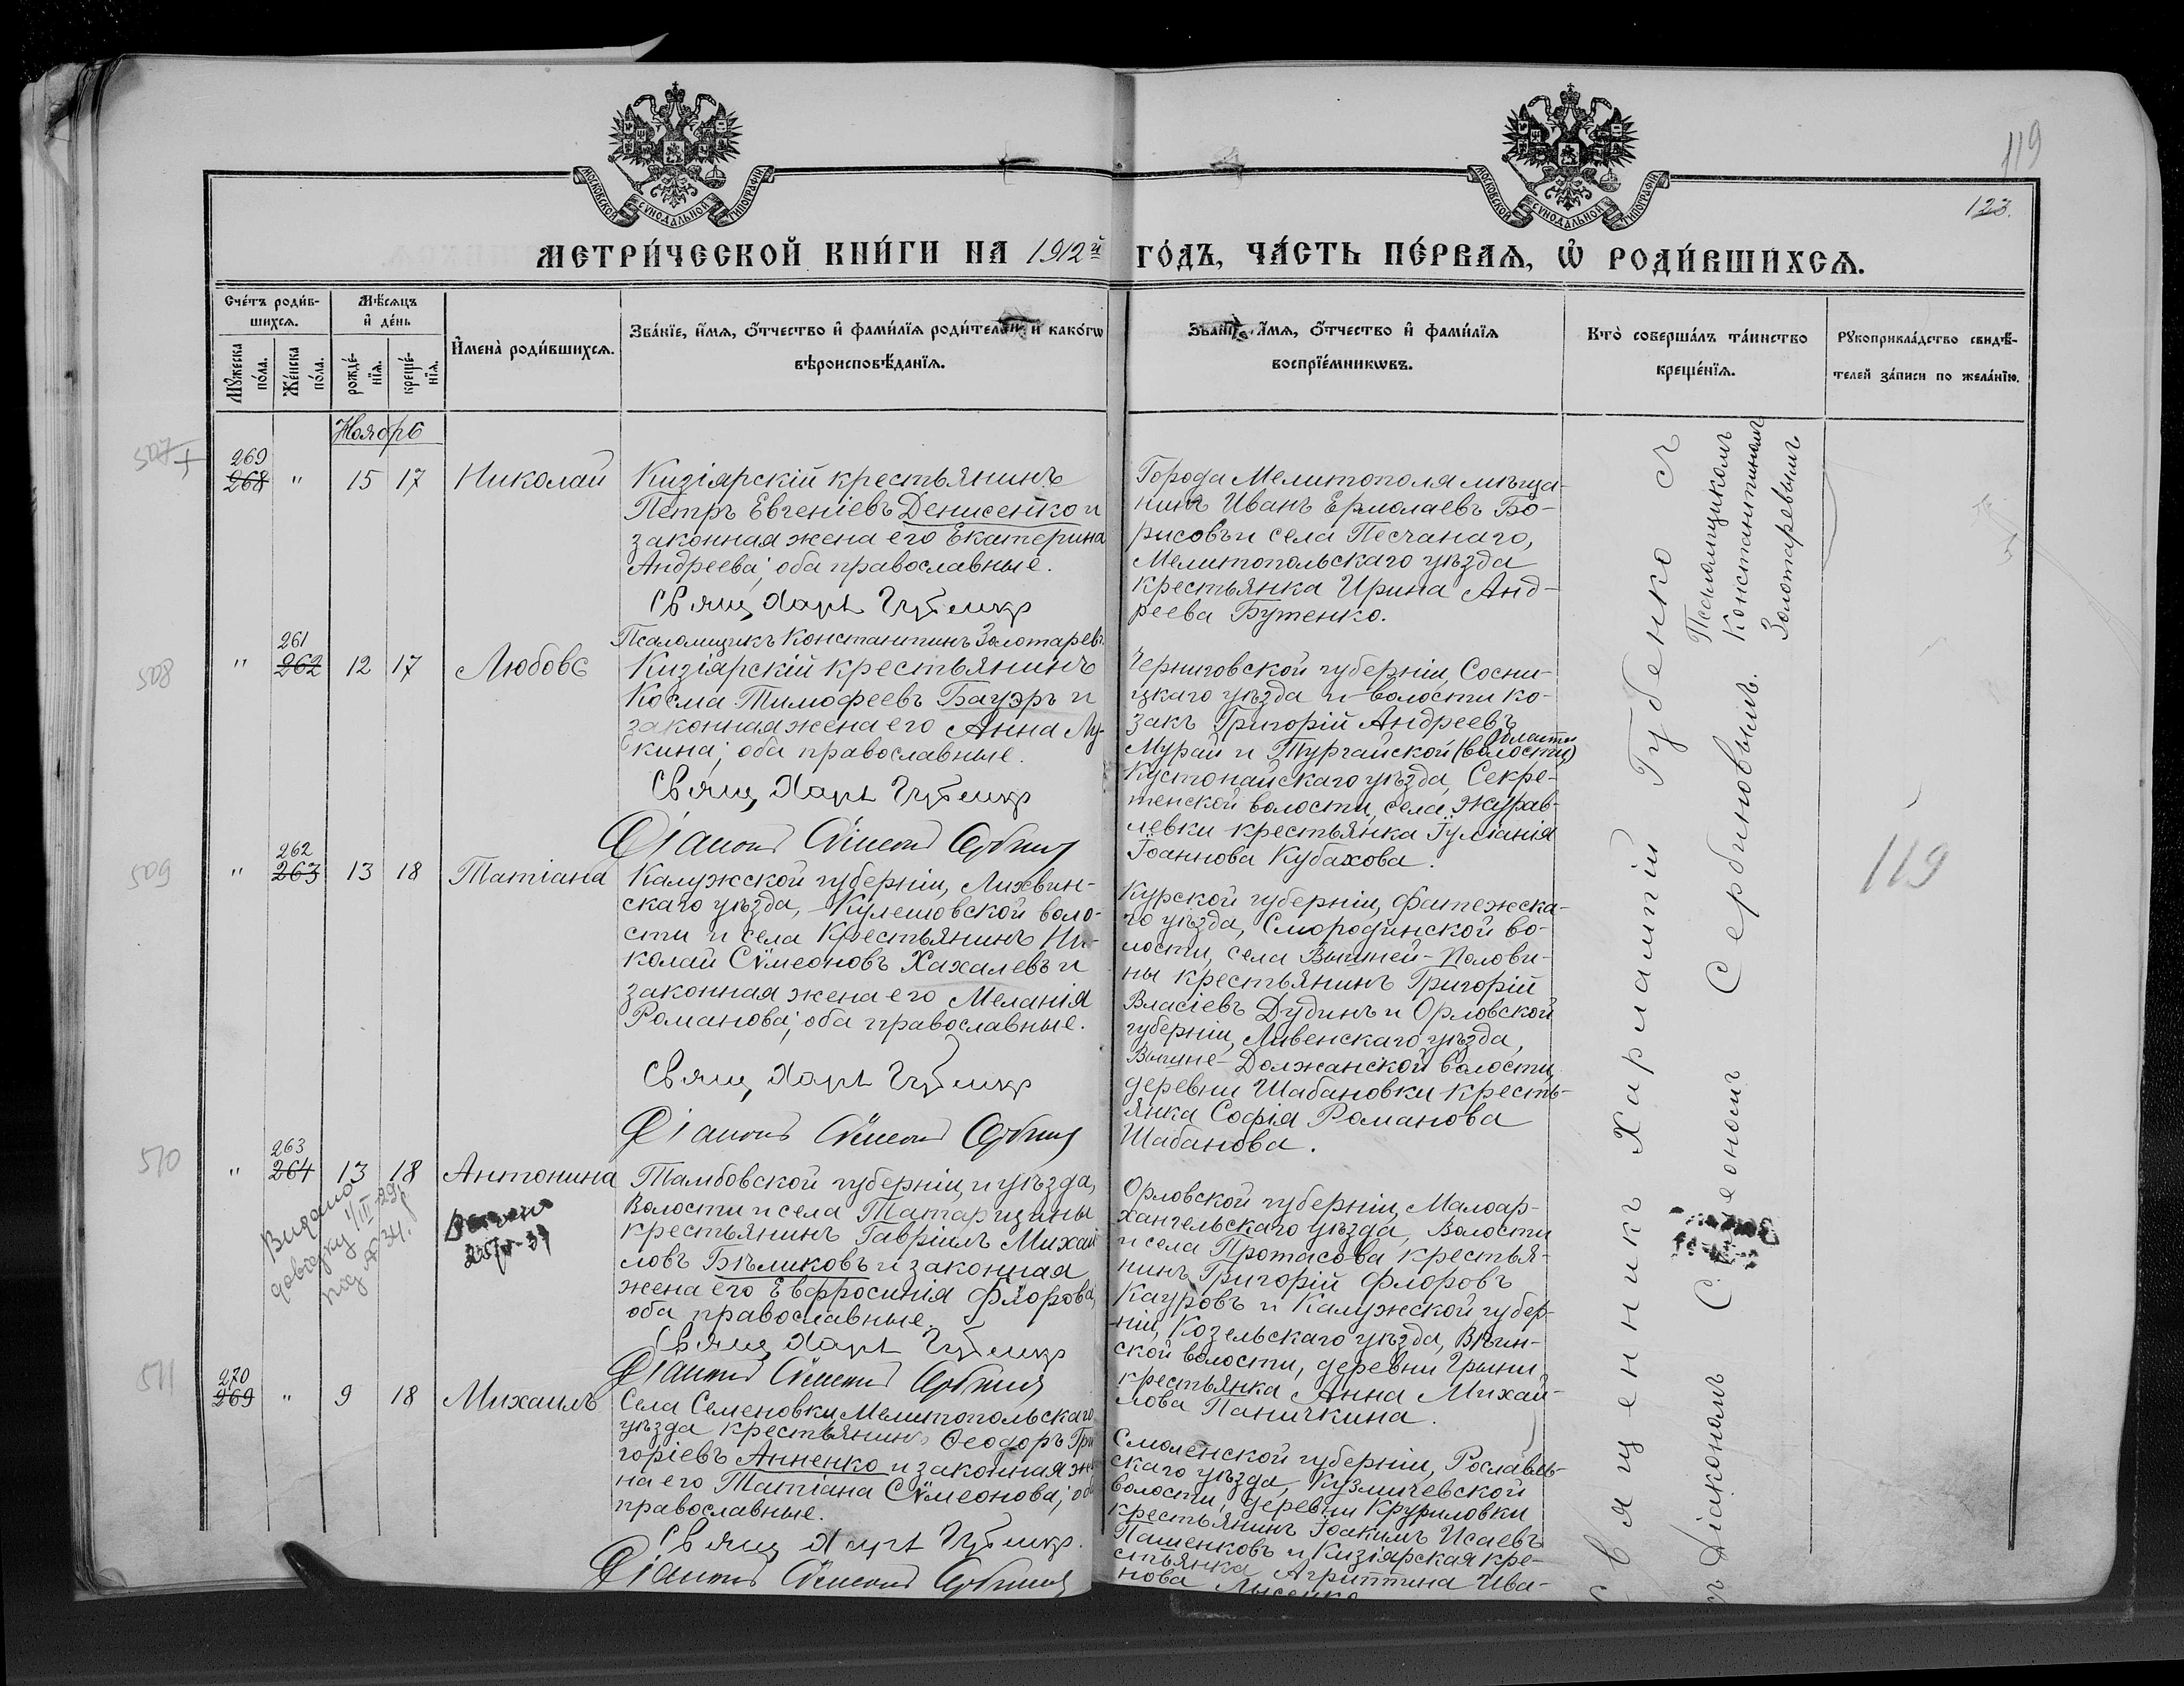 119
123.
МОСКОВСКОЙ СѴНОДАЛЬНОЙ ТИПОГРАФІИ
МОСКОВСКОЙ СѴНОДАЛЬНОЙ ТИПОГРАФІИ
МЕТРИ́ЧЕСКОЙ КНИ́ГИ НА 1912й ГО́ДЪ, ЧА́СТЬ ПЕ́РВАѦ, Ѽ РОДИ́ВШИХСѦ.
Сче́тъ роди́в-
шихсѧ.
Мѣ́сѧцъ
и҆ де́нь
Мꙋ́жеска по́ла.
Же́нска по́ла.
рожде́-
нїѧ.
креще́-
нїѧ.
И҆мена̀ роди́вшихсѧ.
Зва́нїе, и҆́мѧ, ѻ҆́тчество и҆ фами́лїѧ роди́телей, и҆ како́гѡ
вѣроисповѣ́данїѧ.
Зва́нїе, и҆́мѧ, ѻ҆́тчество и҆ фами́лїѧ
воспрїе́мникѡвъ.
Кто̀ соверша́лъ та́инство
креще́нїѧ.
Рꙋкоприкла́дство свидѣ́-
телей за́писи по жела́нїю.
Ноябрь
507
269
268 " 15 17 Николай
Кизіярскій крестьянинъ
Петръ Евгеніевъ Денисенко и
законная жена его Екатерина
Андреева; оба православные.
Свящ. Харл. Губенко
Псаломщикъ Константинъ Золотаревъ
Города Мелитополя мѣща-
нинъ Иванъ Ермолаевъ Бо-
рисовъ и села Песчанаго,
Мелитопольскаго уѣзда
крестьянка Ирина Анд-
реева Бутенко.
508
261
" 262 12 17 Любовь
Кизіярскій крестьянинъ
Косма Тимофеевъ Бауэръ и
законная жена его Анна Лу-
кина; оба православные.
Свящ. Харл. Губенко
Діаконъ Сѵмеонъ Сербиновъ
Черниговской губерніи, Сосни-
цкаго уѣзда и волости ко-
закъ Григорій Андреевъ
области
Мурай и Тургайской (волости)
Кустонайскаго уѣзда, Секре-
тенской волости, села Журав-
левки крестьянка Іуліанія
Іоаннова Кубахова.
509
262
" 263 13 18 Татіана
Калужской губерніи, Лихвин-
скаго уѣзда, Кулешовской воло-
сти и села крестьянинъ Ни-
колай Сѵмеоновъ Хахалевъ и
законная жена его Меланія
Романова; оба православные.
Свящ. Харл. Губенко
Діаконъ Сѵмеонъ Сербиновъ
Курской губерніи, Фатежска-
го уѣзда, Смородинской во-
лости, села Вышней-Полови-
ны крестьянинъ Григорій
Власіевъ Дудинъ и Орловской
губерніи, Ливенскаго уѣзда,
Вышне-Должанской волости,
деревни Шабановки кресть-
янка Софія Романова
Шабанова.
119
510
263
" 264 13 18 Антонина
Видано
довідку 1/III-29р
під № 34.
Тамбовской губерніи, и уѣзда,
Волости и села Татарщины
крестьянинъ Гавріилъ Михаи
ловъ Бѣликовъ и законная
жена его Евфросинія Флорова,
оба православные.
Свящ. Харл. Губенко
Діаконъ Сѵмеонъ Сербиновъ
Орловской губерніи, Малоар-
хангельскаго уѣзда, Волости
и села Протасова крестья-
нинъ Григорій Флоровъ
Кауровъ и Калужской губер-
ніи, Козельскаго уѣзда, Вѣин-
ской волости, деревни Грыни
крестьянка Анна Михай-
лова Паничкина.
511
270
269 " 9 18 Михаилъ
Села Семеновки, Мелитопольскаго
уѣзда крестьянинъ Ѳеодоръ Гри
горіевъ Анненко и законная же
на его Татіана Сѵмеонова; оба
православные.
Свящ. Харл. Губенко.
Діаконъ Сѵмеонъ Сербиновъ
Смоленской губерніи, Рославль-
скаго уѣзда, Кузмичевской
волости, деревни Круриловки
крестьянинъ Іоакимъ Исаевъ
Пашенковъ и Кизіярская кре-
стьянка Агриппина Ива-
нова Лысенко
Священникъ Харлампій Губенко съ
Псаломщикомъ
Константиномъ
Золотаревымъ
съ Діакономъ Сѵмеономъ Сербиновымъ.